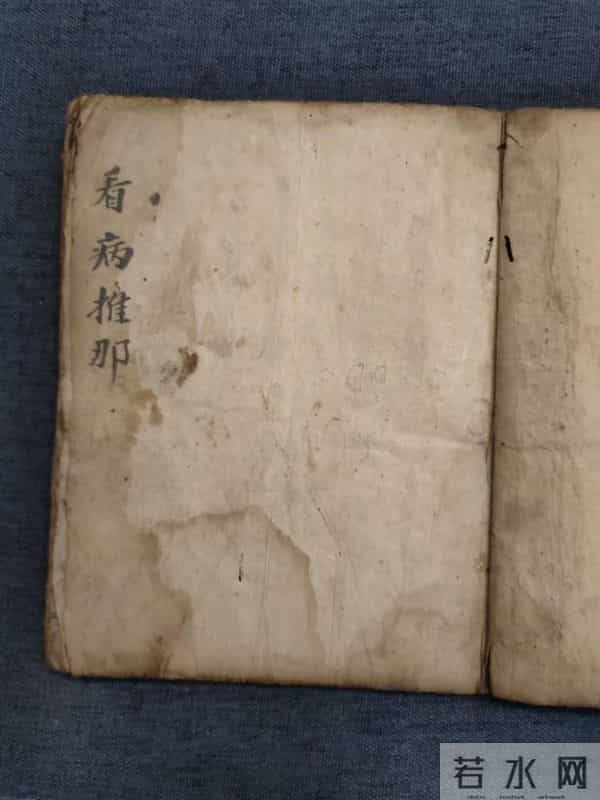 看病推那
若水网